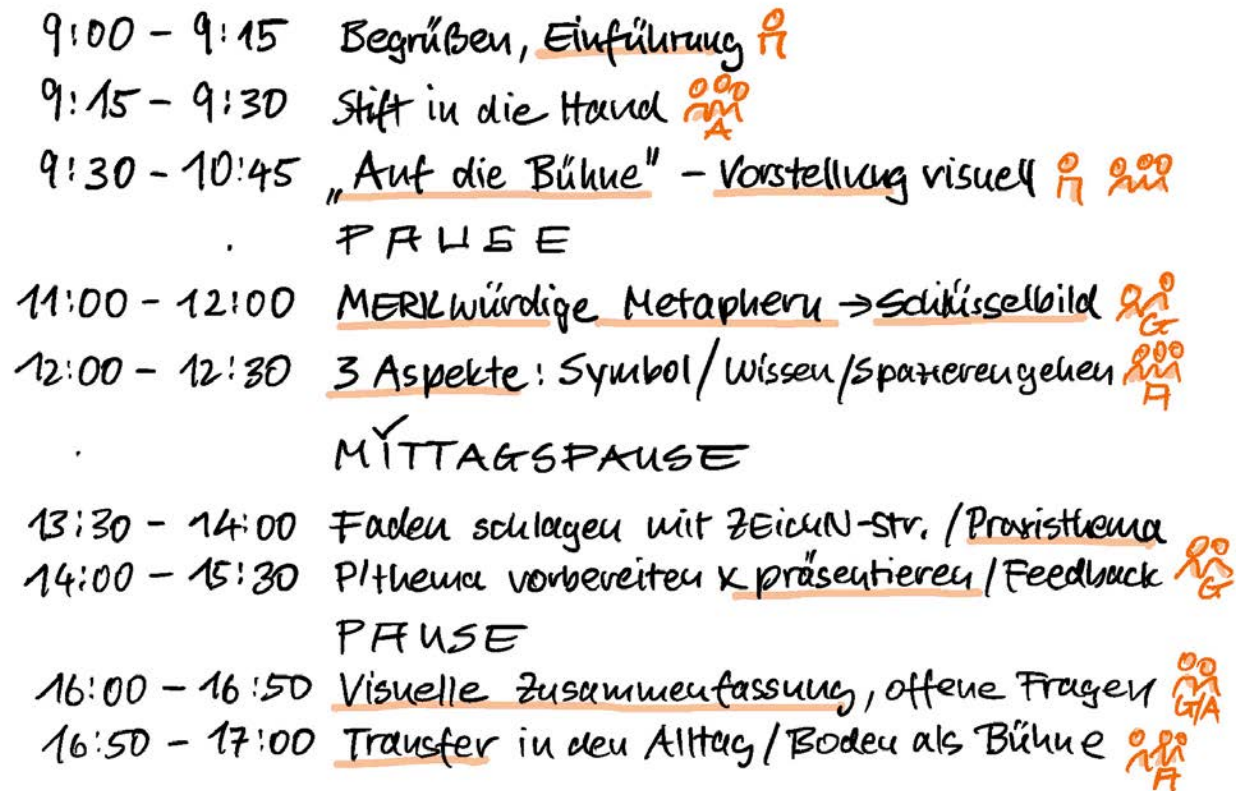 9:00 - 9:15 Begrüßen, Einführung
9:15 - 9:30 Stift in die Hand A
9:30 - 10:45 „Auf die Bühne" - Vorstellung visuell
PAUSE
11:00 - 12:00 MERKwürdige Metaphern → Schlüsselbild G
12:00 - 12:30 3 Aspekte: Symbol/Wissen/Spazierengehen A
MITTAGSPAUSE
13:30 - 14:00 Faden schlagen mit ZEichN-Str. / Praxisthema
14:00 - 15:30 P/thema vorbereiten & präsentieren / Feedback G
PAUSE
16:00 - 16:50 Visuelle Zusammenfassung, offene Fragen G/A
16:50 - 17:00 Transfer in den Alltag / Boden als Bühne A